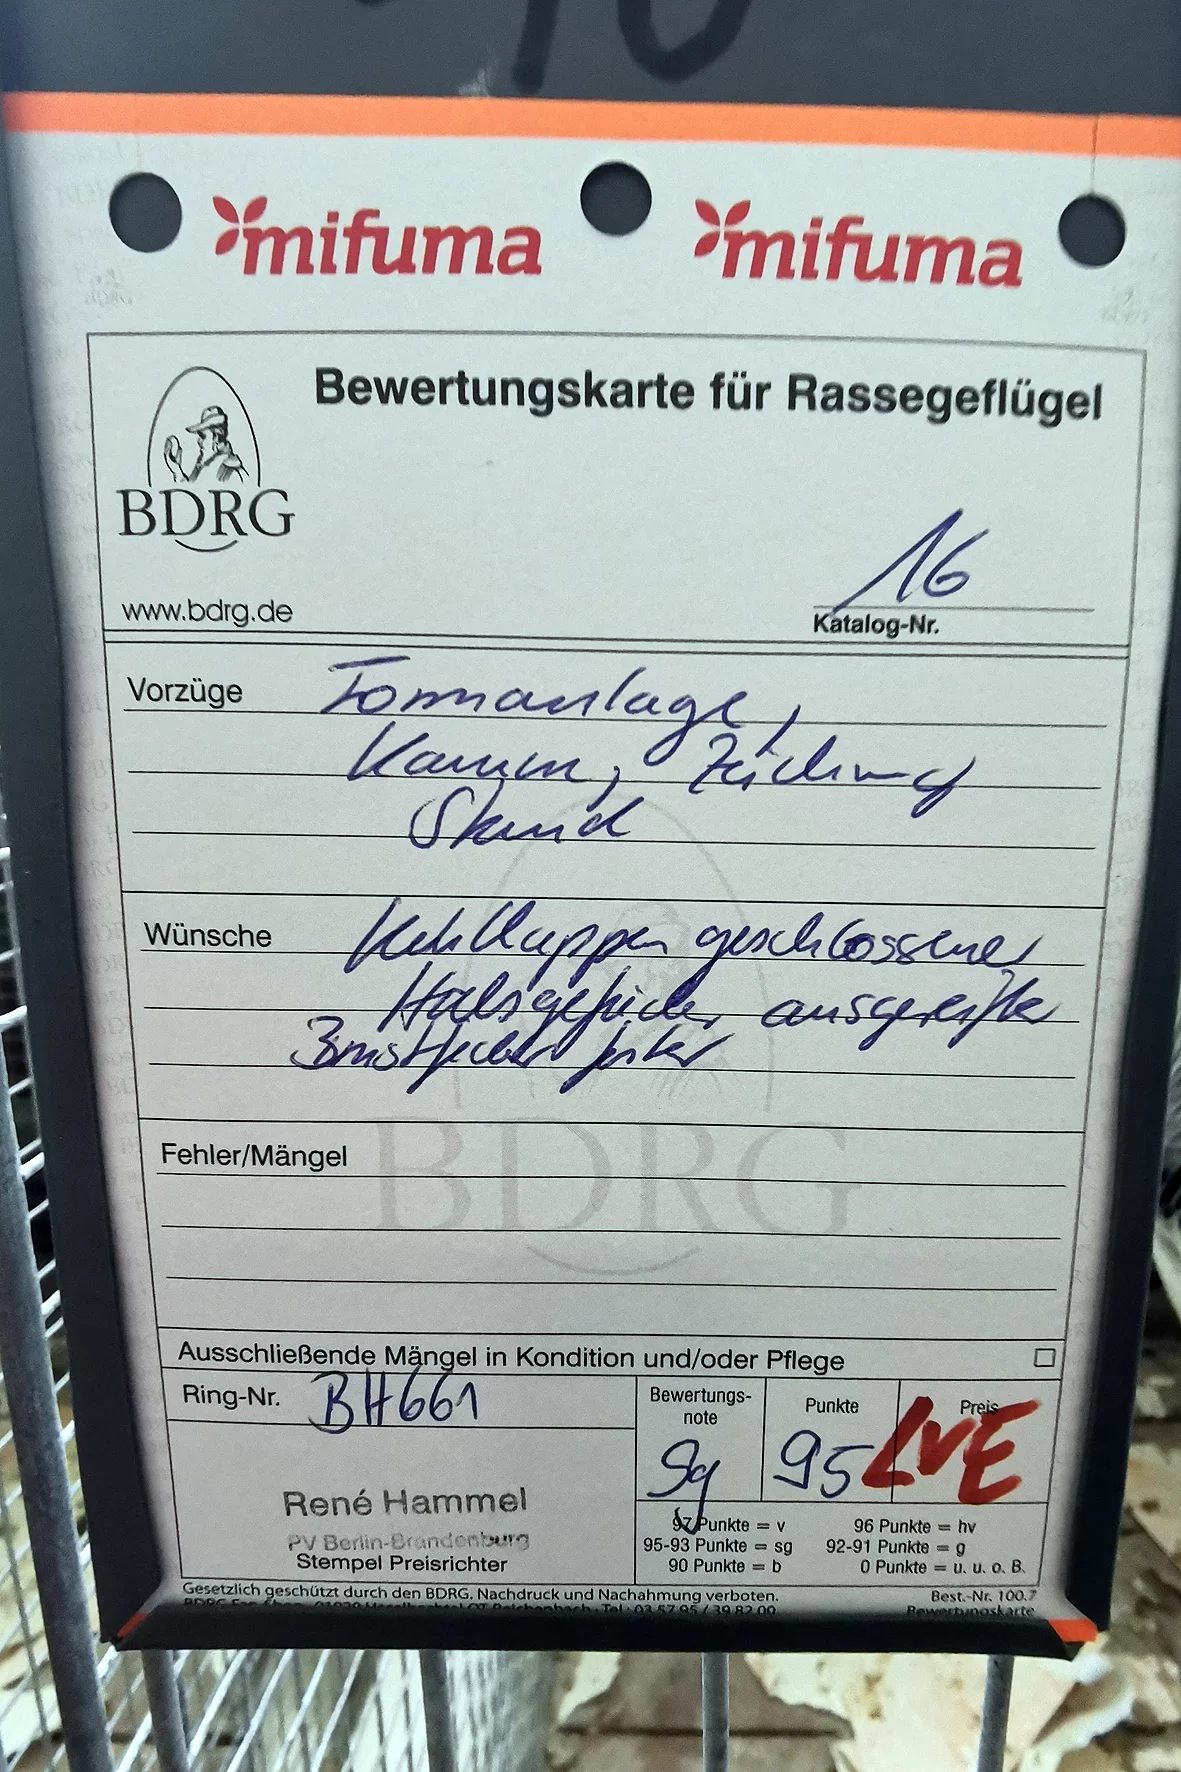 mifuma mifuma
Bewertungskarte für Rassegeflügel
BDRG
www.bdrg.de
16
Katalog-Nr.
Vorzüge Formanlage,
Kamm, Zeichnung
Stand
Wünsche Kehllappen geschlossener
Halsgefieder ausgereifter
Brustfeder
BDRG
Fehler/Mängel
Ausschließende Mängel in Kondition und/oder Pflege
Ring-Nr. BH661
Bewertungs-
note
Sg
Punkte
95
Preis
LVE
René Hammel
PV Berlin-Brandenburg
Stempel Preisrichter
97 Punkte = v 96 Punkte = hv
95-93 Punkte = sg 92-91 Punkte = g
90 Punkte = b 0 Punkte = u. u. o. B.
Gesetzlich geschützt durch den BDRG. Nachdruck und Nachahmung verboten.
Best.-Nr. 100.7
Bewertungskarte